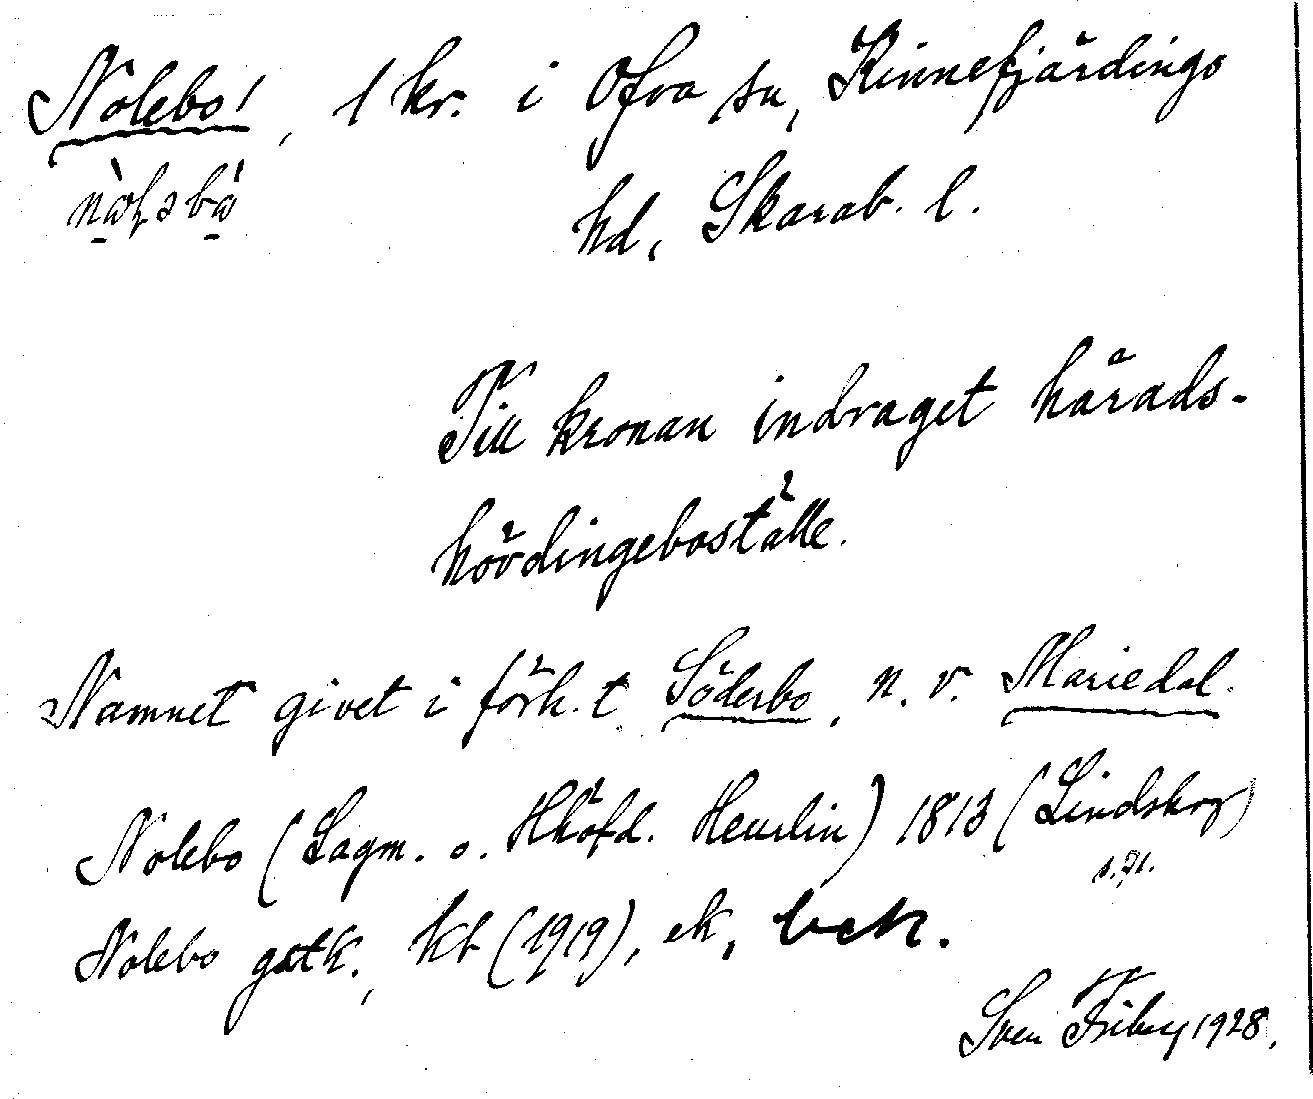 Nolebo!, 1 kr. i Ofva sn, Kinnefjärdings
hd, Skarab. l.
Till kronan indraget härads-
hövdingeboställe.
Namnet givet i förh. t. Söderbo, n. v. Mariedal.
Nolebo (Lagm. o. Hhöfd. Heurlin) 1813 (Lindskog)
Nolebo gstk., kb (1919), ek, bek.
Sven Friberg 1928.